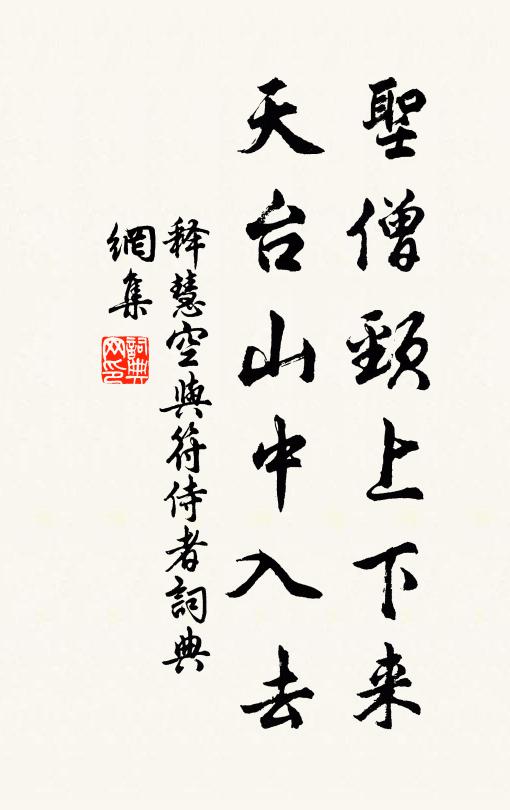 聖僧頸上下来
天台山中入去
释慧空與符侍者詞典
網集
詞典
网印